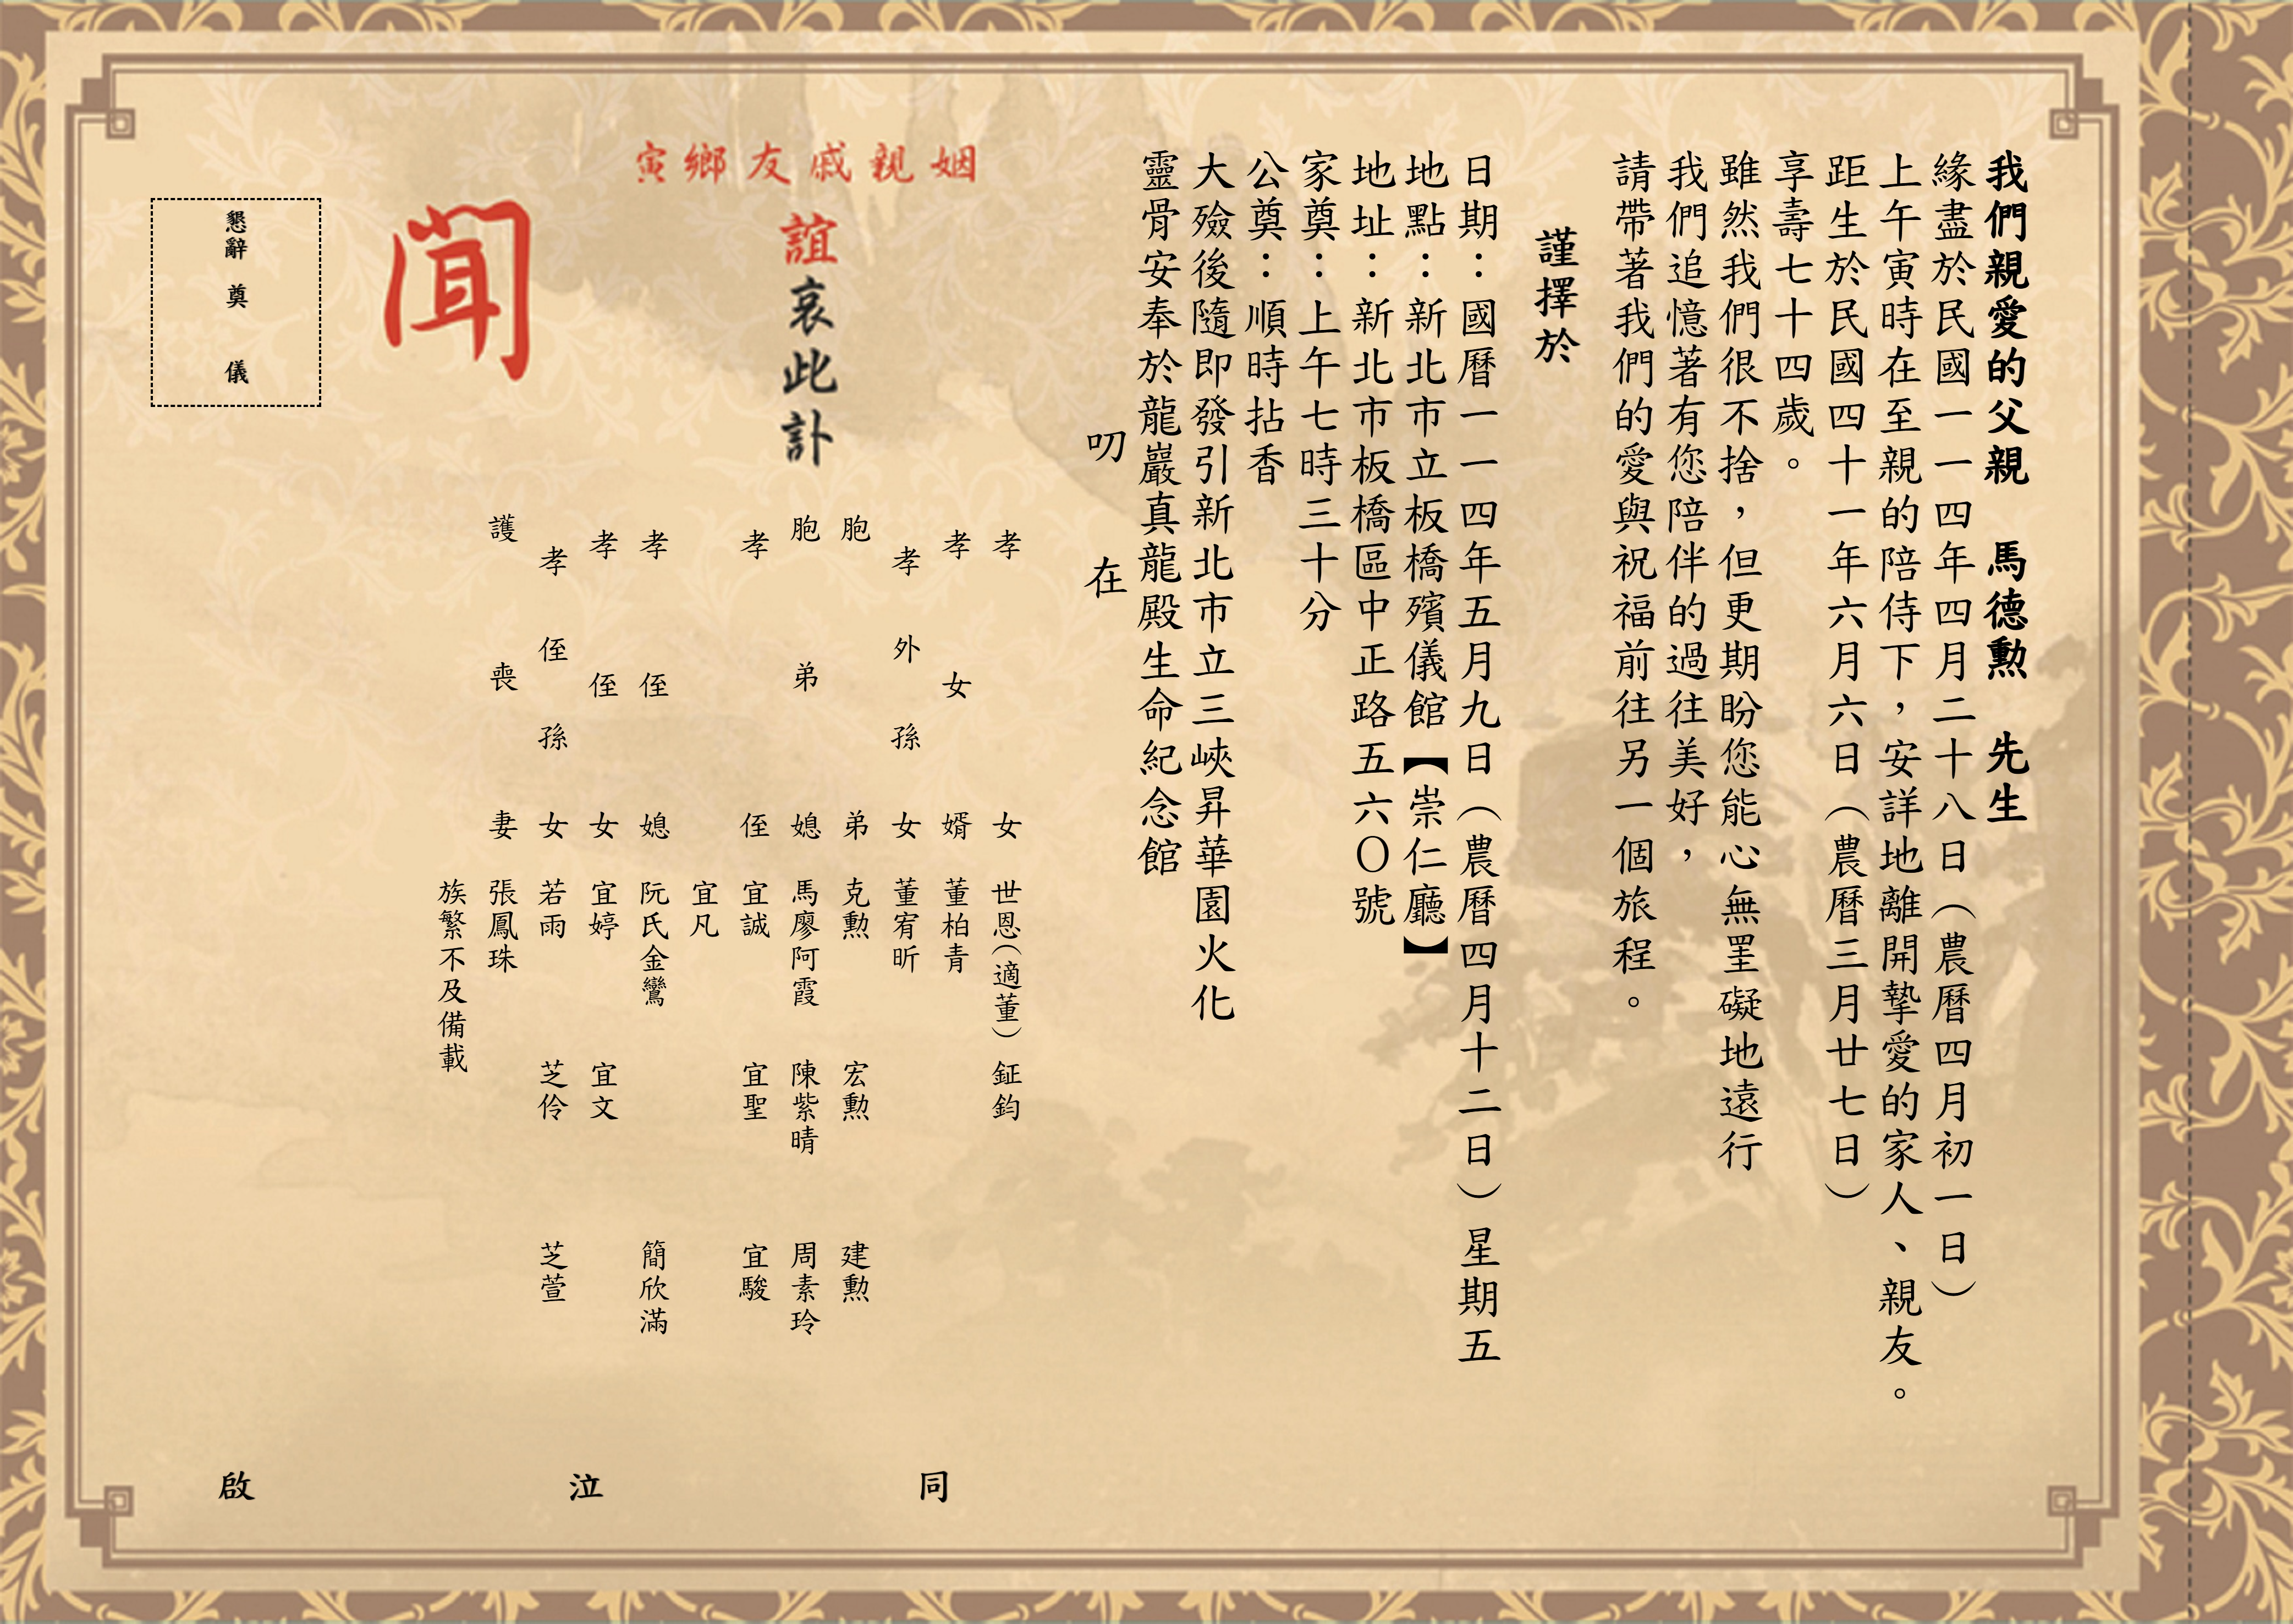 我們親愛的父親　馬德勳　先生
緣盡於民國一一四年四月二十八日（農曆四月初一日）
上午寅時在至親的陪侍下，安詳地離開摯愛的家人、親友。
距生於民國四十一年六月六日（農曆三月廿七日）
享壽七十四歲。
雖然我們很不捨，但更期盼您能心無罣礙地遠行
我們追憶著有您陪伴的過往美好，
請帶著我們的愛與祝福前往另一個旅程。
謹擇於
日期：國曆一一四年五月九日（農曆四月十二日）星期五
地點：新北市立板橋殯儀館【崇仁廳】
地址：新北市板橋區中正路五六〇號
家奠：上午七時三十分
公奠：順時拈香
大殮後隨即發引新北市立三峽昇華園火化
靈骨安奉於龍巖真龍殿生命紀念館
叨　在
姻親戚友鄉寅
誼哀此訃
聞
孝女　世恩（適董）　鉦鈞
孝女婿　董柏青
孝外孫女　董宥昕
胞弟　克勳　宏勳　建勳
胞弟媳　馬廖阿霞　陳紫晴　周素玲
孝侄　宜誠　宜聖　宜駿
宜凡
孝侄媳　阮氏金鸞　簡欣滿
孝侄女　宜婷　宜文
孝侄孫女　若雨　芝伶　芝萱
護喪妻　張鳳珠
族繁不及備載
懇辭　奠　儀
同　泣　啟